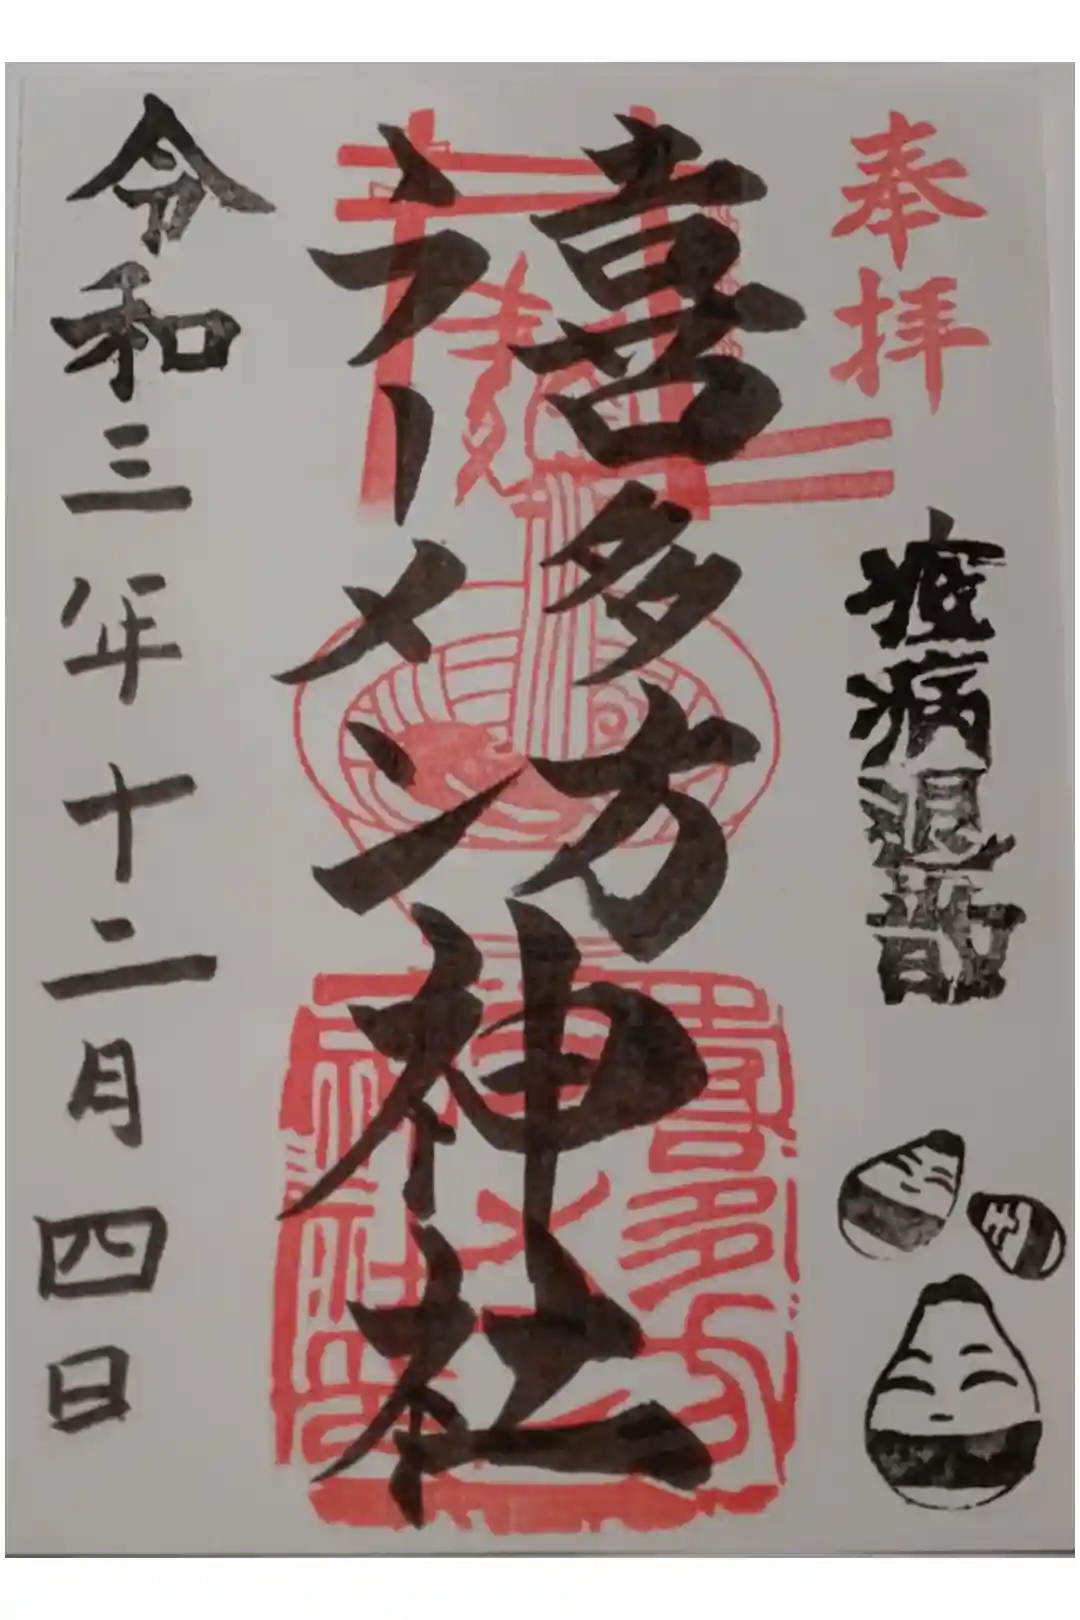 奉拝
疫病退散
喜多方
ラーメン
神社
喜多方
神社
令和三年十二月四日